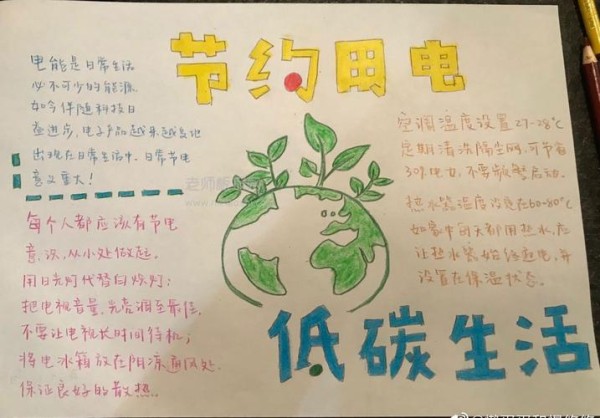 节约用电
电能是日常生活
必不可少的能源.
如今伴随科技日
益进步,电子产品越来越多地
出现在日常生活中.日常节电
意义重大!
每个人都应该有节电
意识,从小处做起.
用日光灯代替白炽灯;
把电视音量、亮亮调至最佳.
不要让电视长时间待机;
将电冰箱放在阴凉通风处.
保证良好的散热.
空调温度设置27-28℃
定期清洗隔尘网,可节省
30%电力,不要频繁启动.
热水器温度设定在60-80℃
如家中每天都用热水,应
让热水器始终通电,并
设置在保温状态.
低碳生活